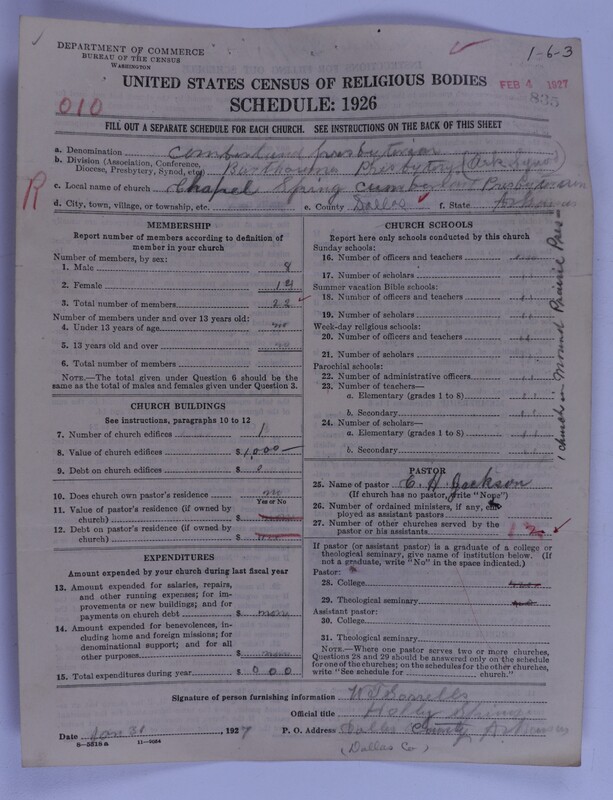 1-6-3
DEPARTMENT OF COMMERCE
BUREAU OF THE CENSUS
WASHINGTON
UNITED STATES CENSUS OF RELIGIOUS BODIES
FEB 4 1927
835
010
SCHEDULE: 1926
FILL OUT A SEPARATE SCHEDULE FOR EACH CHURCH. SEE INSTRUCTIONS ON THE BACK OF THIS SHEET
a. Denomination Presbyterian
b. Division (Association, Conference, Diocese, Presbytery, Synod, etc.) Presbytery (Ark Synod)
R
c. Local name of church Chapel Spring Cumberland Presbyterian
d. City, town, village, or township, etc. e. County Dallas f. State Arkansas
MEMBERSHIP
Report number of members according to definition of member in your church
Number of members, by sex:
1. Male 8
2. Female 14
3. Total number of members 22
Number of members under and over 13 years old:
4. Under 13 years of age
5. 13 years old and over
6. Total number of members
NOTE.—The total given under Question 6 should be the same as the total of males and females given under Question 3.
CHURCH BUILDINGS
See instructions, paragraphs 10 to 12
7. Number of church edifices 1
8. Value of church edifices $1,000
9. Debt on church edifices $ 0
10. Does church own pastor's residence no
Yes or No
11. Value of pastor's residence (if owned by church) $
12. Debt on pastor's residence (if owned by church) $
EXPENDITURES
Amount expended by your church during last fiscal year
13. Amount expended for salaries, repairs, and other running expenses; for improvements or new buildings; and for payments on church debt $ none
14. Amount expended for benevolences, including home and foreign missions; for denominational support; and for all other purposes $
15. Total expenditures during year $ 0 0 0
CHURCH SCHOOLS
Report here only schools conducted by this church
Sunday schools:
16. Number of officers and teachers
17. Number of scholars
Summer vacation Bible schools:
18. Number of officers and teachers
19. Number of scholars
Week-day religious schools:
20. Number of officers and teachers
21. Number of scholars
Parochial schools:
22. Number of administrative officers
23. Number of teachers—
a. Elementary (grades 1 to 8)
b. Secondary
24. Number of scholars—
a. Elementary (grades 1 to 8)
b. Secondary
1 church in Mound Prairie Pres-
PASTOR
25. Name of pastor Jackson
(If church has no pastor, write "None")
26. Number of ordained ministers, if any, employed as assistant pastors
27. Number of other churches served by the pastor or his assistants
If pastor (or assistant pastor) is a graduate of a college or theological seminary, give name of institution below. (If not a graduate, write "No" in the space indicated.)
Pastor:
28. College
29. Theological seminary
Assistant pastor:
30. College
31. Theological seminary
NOTE.—Where one pastor serves two or more churches, Questions 28 and 29 should be answered only on the schedule for one of the churches; on the schedules for the other churches, write "See schedule for church."
Signature of person furnishing information
Official title Holly Springs
Date Jan 31, 1927 P. O. Address Dallas County Arkansas
(Dallas Co)
8-5518a 11-9084